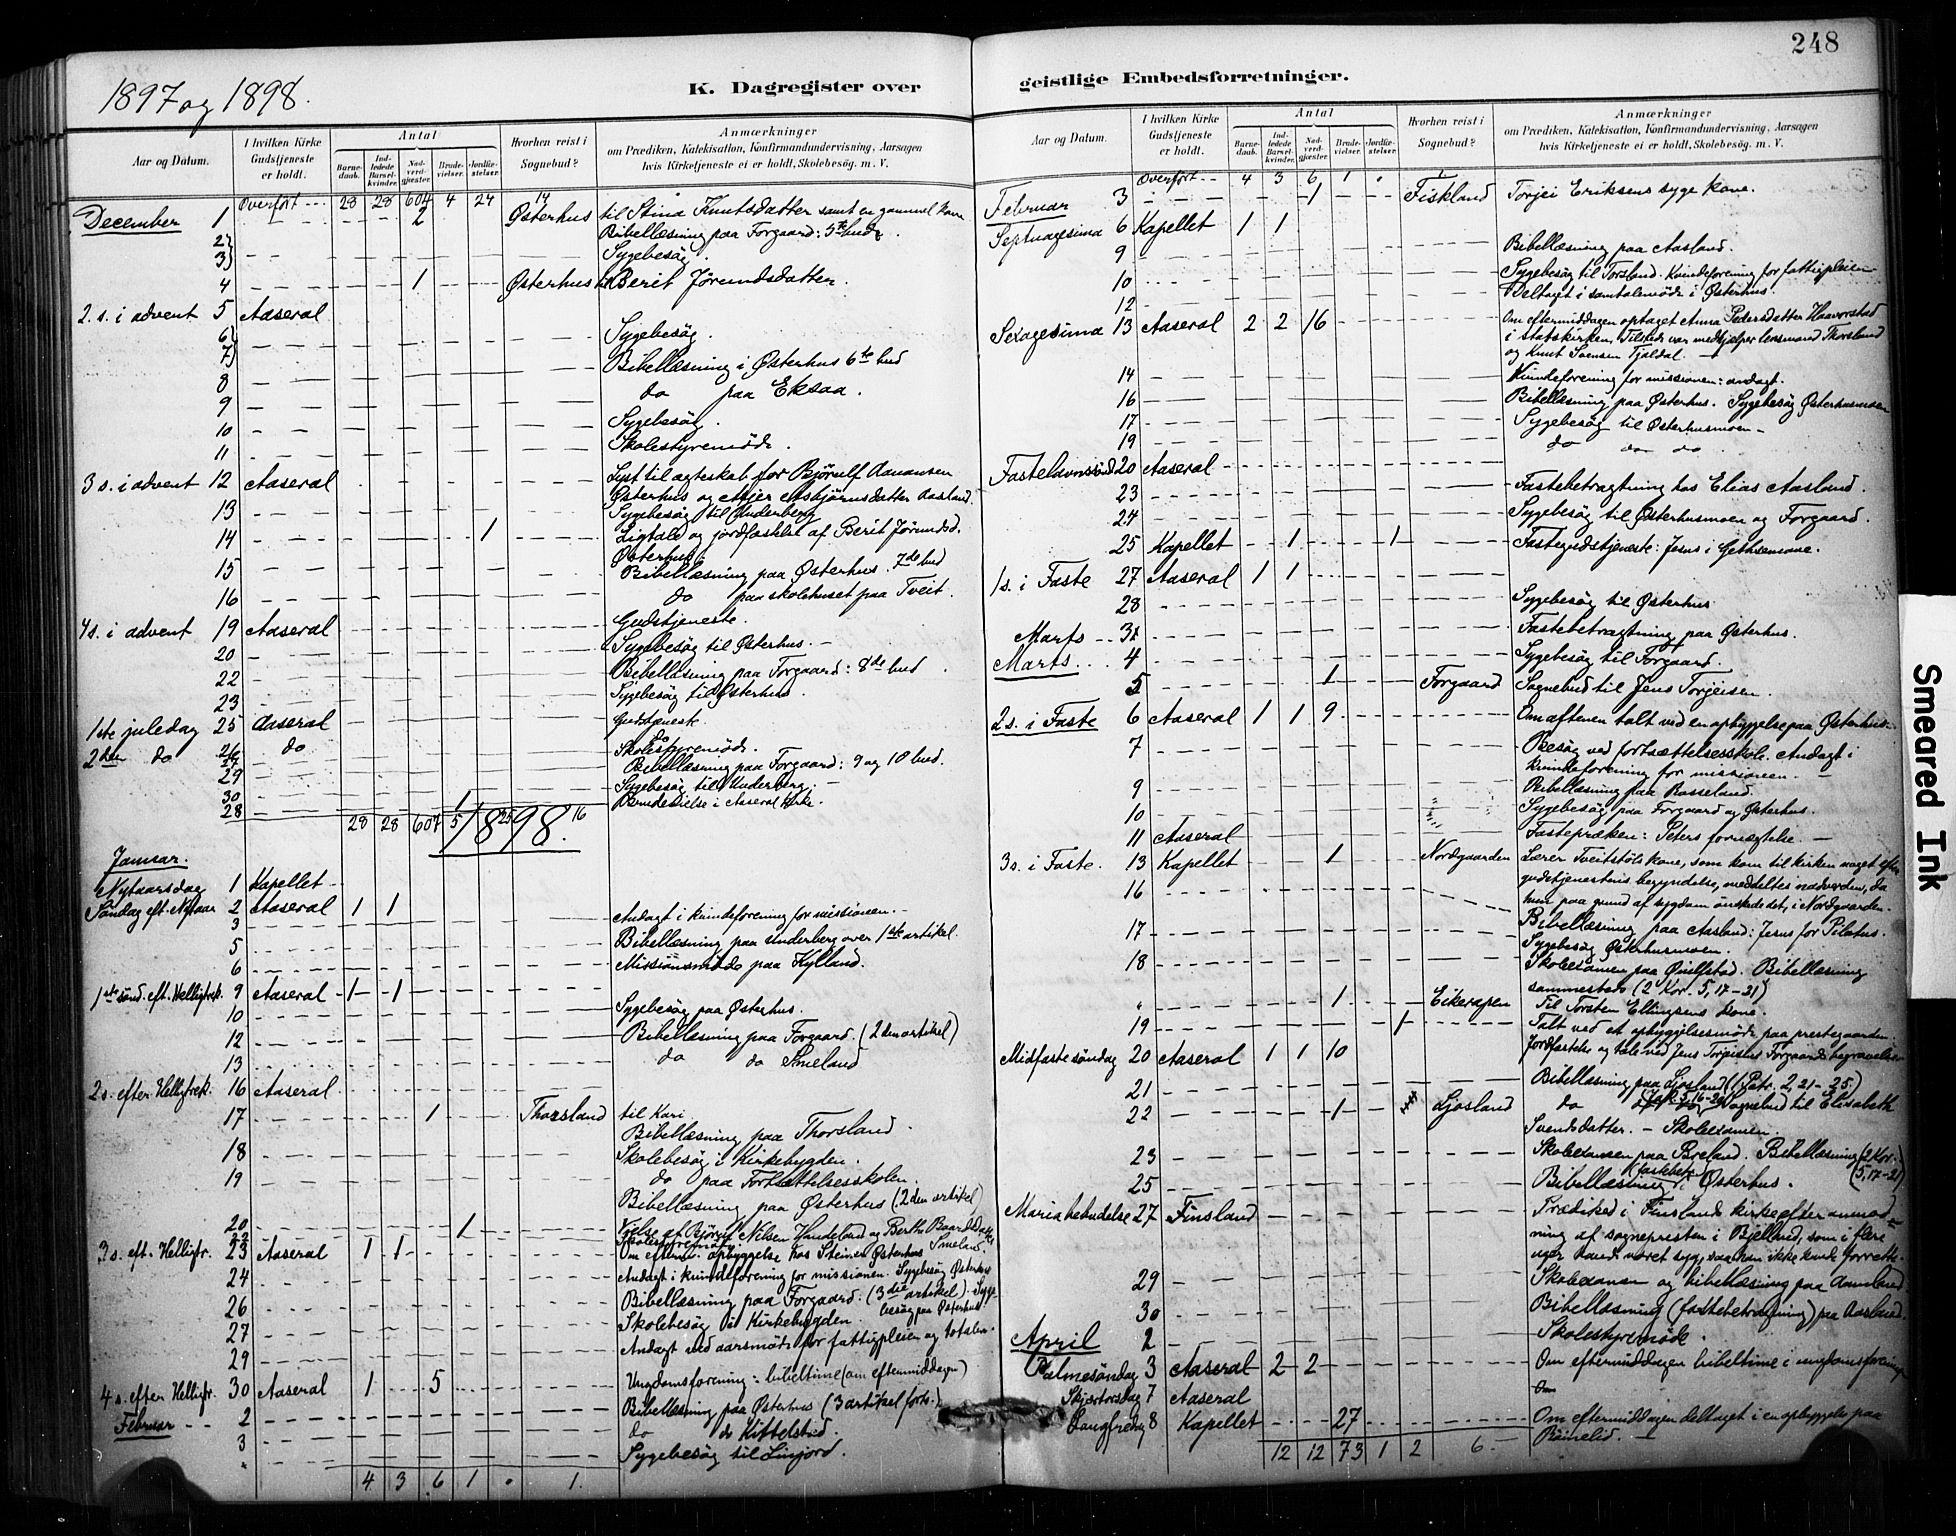 248
1897 og 1898.
K. Dagregister over
geistlige Embedsforretninger.
Aar og Datum.
I hvilken Kirke Gudstjeneste er holdt.
Antal
Barne-daab.
Ind-ledede Barsel-kvinder.
Nad-verd-gjæster.
Brude-vielser.
Jordfæ-stelser.
Hvorhen reist i Sognebud?
Anmærkninger
om Prædiken, Katekisation, Konfirmandundervisning, Aarsagen
hvis Kirketjeneste ei er holdt, Skolebesøg. m. V.
Overført 28 28 604 4 24 14
December 1 2 Østerhus til Stina Knutsdatter samt en gammel kone
Bibellæsning paa Forgaard: 5te bud
2 3 Sygebesøg.
4 1 Østerhus til Berit Jørundsdatter.
2. s. i advent 5 Aaseral
6 Sygebesøg.
7 Bibellæsning i Østerhus 6te bud
8 do paa Eksaa.
9 Sygebesøg.
10 Skolestyremøde.
11
3 s. i advent 12 Aaseral Lyst til ægteskab for Bjørulf Aanansen
Østerhus og Asbjørnsdatter Aasland.
13 Sygebesøg til Underberg
14 1 Ligtale og jordfæstelse af Berit Jørundsd.
Østerhus.
15 Bibellæsning paa Østerhus. 7de bud
16 do paa skolehuset paa Tveit.
4 s. i advent 19 Aaseral Gudstjeneste.
20 Sygebesøg til Østerhus.
22 Bibellæsning paa Forgaard: 8de bud
23 Sygebesøg til Østerhus.
1ste juledag 25 Aaseral Gudstjeneste.
2den do 26 do do
Skolestyremøde.
29 Bibellæsning paa Forgaard: 9 og 10 bud.
30 Sygebesøg til Underberg.
28 1 Brudevielse i Aaseral kirke.
28 28 607 5 25 16
1898.
Januar.
Nytaarsdag 1 Kapellet
Søndag eft. Nytaar 2 Aaseral 1 1
3 Andagt i kvindeforening for missionen.
5 Bibellæsning paa Underberg over 1ste artikel.
6 Missionsmøde paa Kylland.
1ste sønd. eft. Helligtrek. 9 Aaseral 1 1
10 Sygebesøg paa Østerhus.
12 Bibellæsning paa Forgaard. (2den artikel)
13 do do Smeland
2 s. efter Helligtrek. 16 Aaseral
17 1 Thorsland til Kari
Bibellæsning paa Thorsland.
18 Skolebesøg i Kirkebygden.
19 do paa Fortsættelsesskolen.
Bibellæsning paa Østerhus (2den artikel)
20 1 Vielse af Bjørulf Nilsen Handeland og Berthe Baardsdatter
22 Skolestyremøde. Smeland.
3 s. eft. Helligtr. 23 Aaseral 1 1 Om efterm. opbyggelse hos Steinar Østerhus
24 Andagt i kvindeforening for missionen. Sygebesøg Østerhus
26 Bibellæsning paa Forgaard. (3die artikel). Syge-
besøg paa Østerhus
27 Skolebesøg i Kirkebygden.
29 Andagt ved aarsmøde for fattigpleien og totalen.
4 s. efter Helligtr. 30 Aaseral 1 5 Ungdomsforening: bibeltime (om eftermiddagen)
Februar 2 Bibellæsning paa Østerhus (3 artikel forts.)
3 do do Kittelstad
Sygebesøg til Linjord.
4 3 6 1 1.
Aar og Datum.
I hvilken Kirke Gudstjeneste er holdt.
Antal
Barne-daab.
Ind-ledede Barsel-kvinder.
Nad-verd-gjæster.
Brude-vielser.
Jordfæ-stelser.
Hvorhen reist i Sognebud?
Anmærkninger
om Prædiken, Katekisation, Konfirmandundervisning, Aarsagen
hvis Kirketjeneste ei er holdt, Skolebesøg. m. V.
Overført 4 3 6 1 1
Februar 3 1 Fiskland Torjei Eriksens syge kone.
Septuagesima 6 Kapellet 1 1
9 Bibellæsning paa Aasland.
10 Sygebesøg til Torsland. Kvindeforening for fattigpleien
12 Deltaget i samtalemøde i Østerhus.
Sexagesima 13 Aaseral 2 2 16 Om eftermiddagen optaget Anna Pedersdatter Haaverstad
i statskirken. Tilstede var medhjelper lensmand Thorsland
og Knut Svensen Tjaldal.
14 Kvindeforening for missionen: andagt.
16 Bibellæsning paa Østerhus. Sygebesøg Østerhusmoen
17 Sygebesøg til Østerhusmoen
19 do do do.
Fastelavnssønd 20 Aaseral
23 Fastebetragtning hos Elias Aasland.
24 Sygebesøg til Østerhusmoen og Forgaard.
25 Kapellet 1 1 Fastegudstjeneste: Jesus i Gethsemane.
1 s. i Faste 27 Aaseral 1 1
28 Sygebesøg til Østerhus
Marts 3 Fastebetragtning paa Østerhus.
Marts 4 Sygebesøg til Forgaard.
5 1 Forgaard Sognebud til Jens Torgeisen.
2 s. i Faste 6 Aaseral 1 1 9 Om aftenen talt ved en opbyggelse paa Østerhus.
7 Besøg ved fortsættelsesskole. Andagt i
kvindeforening for missionen.
9 Bibellæsning paa Rosseland.
10 Sygebesøg paa Forgaard og Østerhus.
11 Aaseral Fastepræken: Peters fornægtelse
3 s. i Faste. 13 Kapellet 1 Nordgaarden Lærer Tveitstøls kone, som kom til kirken noget efter
16 gudstjenestens begyndelse, meddeltes nadverden, da
hun paa grund af sygdom ønskede det, i Nordgaarden.
17 Bibellæsning paa Aasland: Jesus for Pilatus.
Sygebesøg Østerhusmoen.
18 Skolexamen paa Bibellæsning
sammesteds (2 Kor. 5, 17-21)
" 1 Eikerapen Til Torsten Ellingsens kone.
19 1 Talt ved et opbyggelsesmøde paa prestegaarden.
Jordfæstelse og tale ved Jens Torgeisens Forgaards begravelse
Midfastesøndag 20 Aaseral 1 1 10
21 Bibellæsning paa Ljosland (1 Petr. 2, 21-25.)
22 1 Ljosland do Sognebud til Elisabeth
Svendsdatter. - Skolexamen.
23 Skolexamen paa Breland. Bibellæsning (2 Kor. 5, 17-21)
25 Bibellæsning (fastebetr.) i Østerhus.
Maria bebudelse 27 Finsland Prædiked i Finslands kirke efter anmod-
ning af sognepresten i Bjelland, som i flere
uger havde været syg, saa han ikke kunde forrette.
29 Skolexamen og bibellæsning paa
30 Bibellæsning (fastebetragtning) paa Aasland.
April 2 Skolestyremøde.
Palmesøndag 3 Aaseral 2 2 Om eftermiddagen bibeltime i ungdomsforeningen
Skjærtorsdag 7 Aaseral
Langfredag 8 Kapellet 27 Om eftermiddagen deltaget i en opbyggelse paa
12 12 73 1 2 6
Smeared Ink